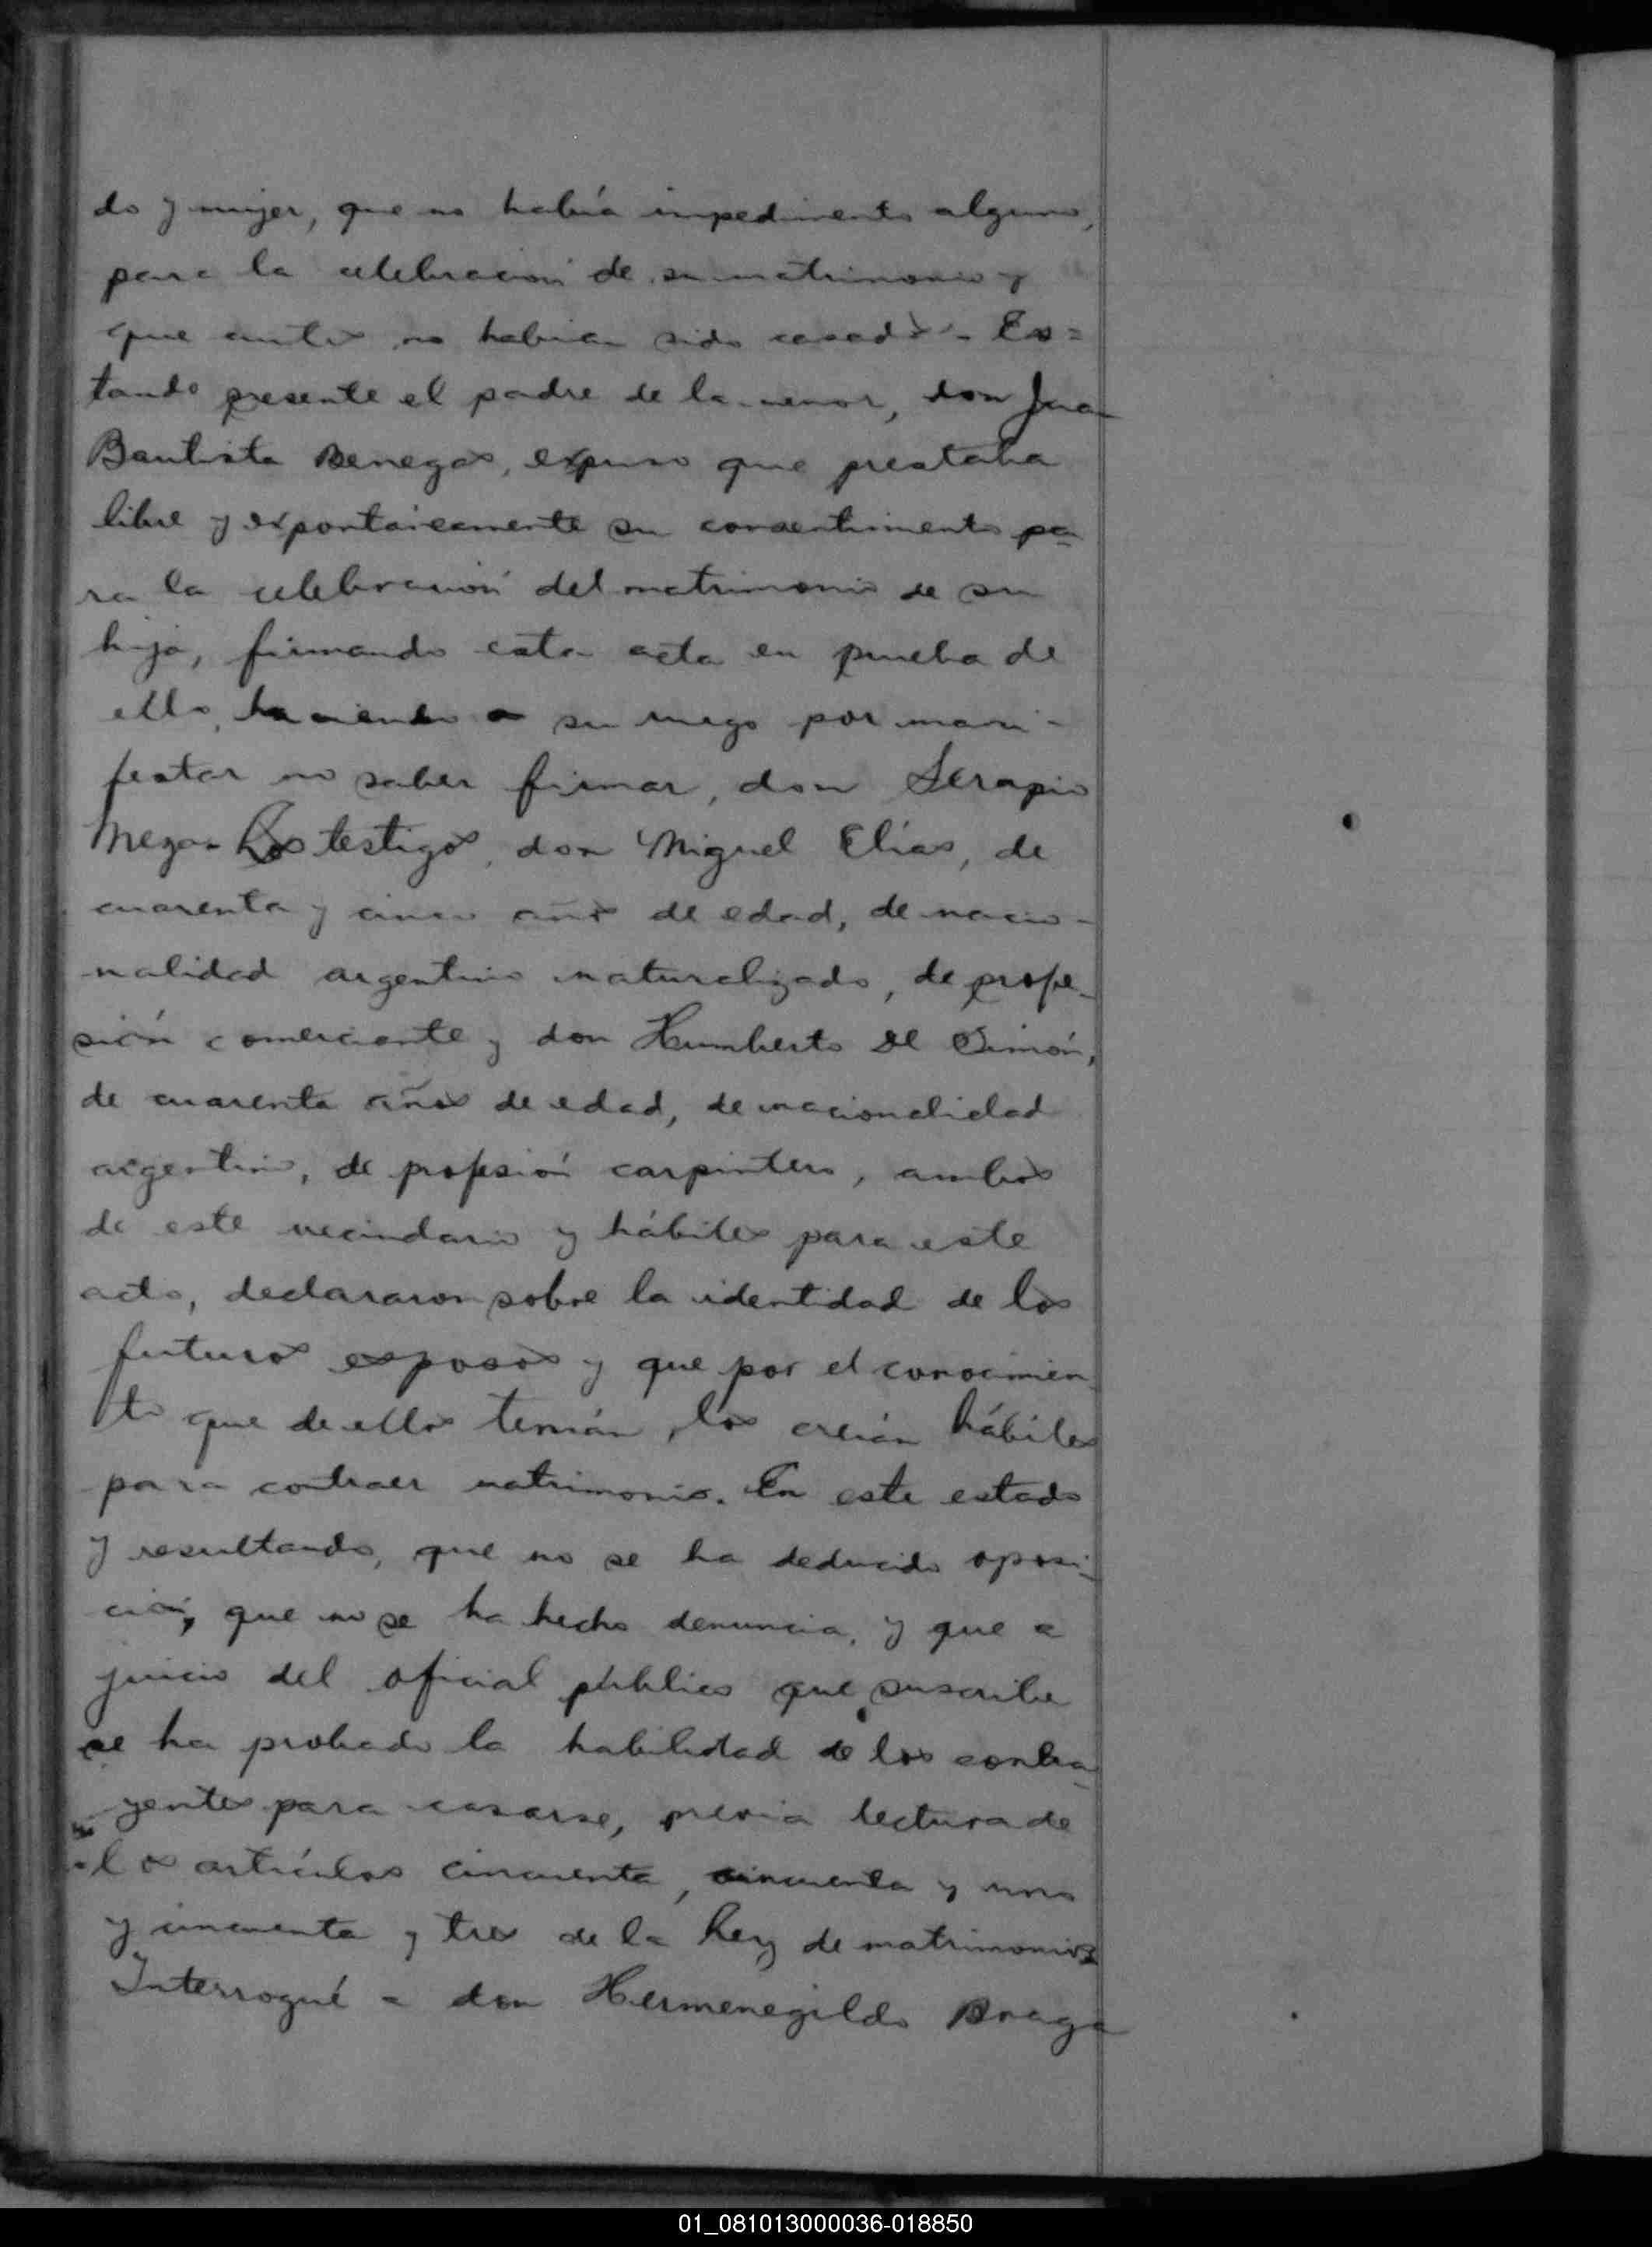 do y mujer, que no había impedimento alguno,
para la celebración de su matrimonio y
que antes no habían sido casados.- Es=
tando presente el padre de la menor, don Juan
Bautista Benegas, expuso que prestaba
libre y expontáneamente su consentimiento pa
ra la celebración del matrimonio de su
hija, firmando esta acta en prueba de
ello, haciendo a su ruego por mani-
festar no saber firmar, don Serapio
Meza. Los testigos, don Miguel Elías, de
cuarenta y cinco años de edad, de nacio-
nalidad argentino naturalizado, de profe-
sión comerciante y don Humberto De Simón,
de cuarenta años de edad, de nacionalidad
argentino, de profesión carpintero, ambos
de este vecindario y hábiles para este
acto, declararon sobre la identidad de los
futuros esposos y que por el conocimien
to que de ellos tenían, los creían hábiles
para contraer matrimonio. En este estado
y resultando, que no se ha deducido oposi-
ción, que no se ha hecho denuncia, y que a
juicio del oficial público que suscribe
se ha probado la habilidad de los contra-
yentes para casarse, previa lectura de
los artículos cincuenta, cincuenta y uno
y cincuenta y tres de la Ley de matrimonios
Interrogué a don Hermenegildo Braga
01_081013000036-018850